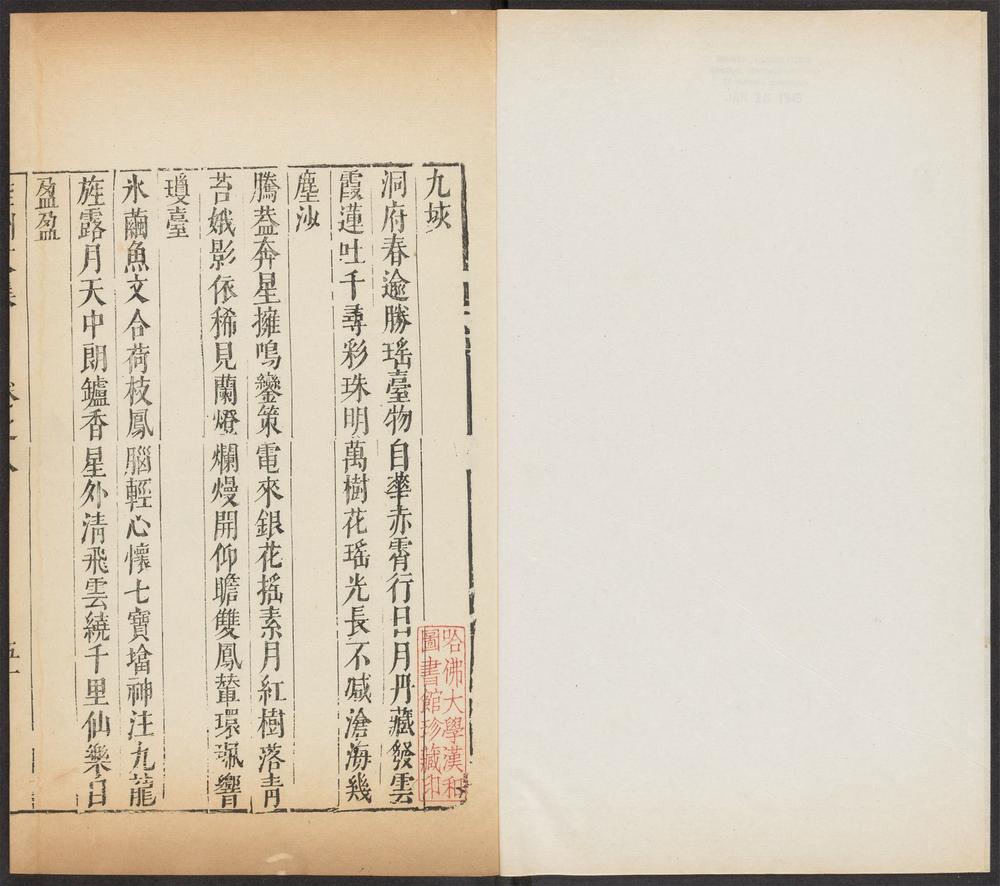 九垓
洞府春逾勝瑤臺物自華赤霄行日月丹藏發雲
霞蓮吐千尋彩珠明萬樹花瑤光長不減滄海幾
塵沙
騰蓋奔星擁鳴鑾策電來銀花搖素月紅樹落青
苔娥影依稀見蘭燈爛熳開仰瞻雙鳳輦環珮響
瓊臺
氷繭魚文合荷枝鳳腦輕心懷七寶墖神注九龍
旌露月天中朗鑪香星外清飛雲繞千里仙樂自
盈盈
哈佛大學漢和
圖書館珍藏印
JAN 26 1949